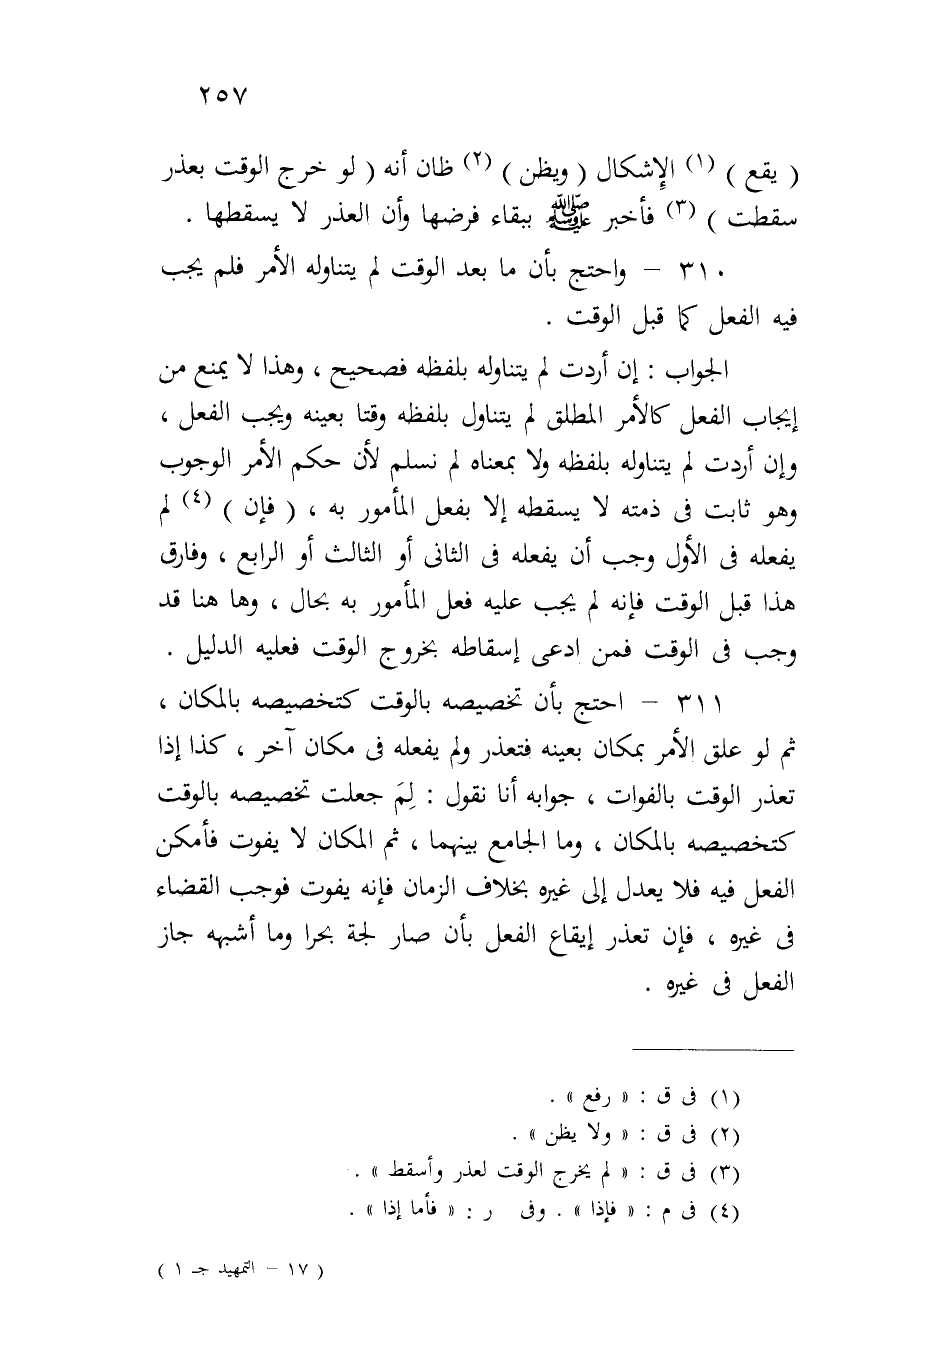 ٢٥٧
( يقع ) (١) الإشكال ( ويظن ) (٢) ظان أنه ( لو خرج الوقت بعذر
سقطت ) (٣) فأخبر ﷺ ببقاء فرضها وأن العذر لا يسقطها .
٣١٠ – واحتج بأن ما بعد الوقت لم يتناوله الأمر فلم يجب
فيه الفعل كما قبل الوقت .
الجواب : إن أردت لم يتناوله بلفظه فصحيح ، وهذا لا يمنع من
إيجاب الفعل كالأمر المطلق لم يتناول بلفظه وقتا بعينه ويجب الفعل ،
وإن أردت لم يتناوله بلفظه ولا بمعناه لم نسلم لأن حكم الأمر الوجوب
وهو ثابت فى ذمته لا يسقطه إلا بفعل المأمور به ، ( فإن ) (٤) لم
يفعله فى الأول وجب أن يفعله فى الثانى أو الثالث أو الرابع ، وفارق
هذا قبل الوقت فإنه لم يجب عليه فعل المأمور به بحال ، وها هنا قد
وجب فى الوقت فمن ادعى إسقاطه بخروج الوقت فعليه الدليل .
٣١١ – احتج بأن تخصيصه بالوقت كتخصيصه بالمكان ،
ثم لو علق الأمر بمكان بعينه فتعذر ولم يفعله فى مكان آخر ، كذا إذا
تعذر الوقت بالفوات ، جوابه أنا نقول : لِمَ جعلت تخصيصه بالوقت
كتخصيصه بالمكان ، وما الجامع بينهما ، ثم المكان لا يفوت فأمكن
الفعل فيه فلا يعدل إلى غيره بخلاف الزمان فإنه يفوت فوجب القضاء
فى غيره ، فإن تعذر إيقاع الفعل بأن صار لجة بحرا وما أشبهه جاز
الفعل فى غيره .
(١) فى ق : « رفع » .
(٢) فى ق : « ولا يظن » .
(٣) فى ق : « لم يخرج الوقت لعذر وأسقط » .
(٤) فى م : « فإذا » . وفى ر : « فأما إذا » .
( ١٧ – التمهيد جـ ١ )